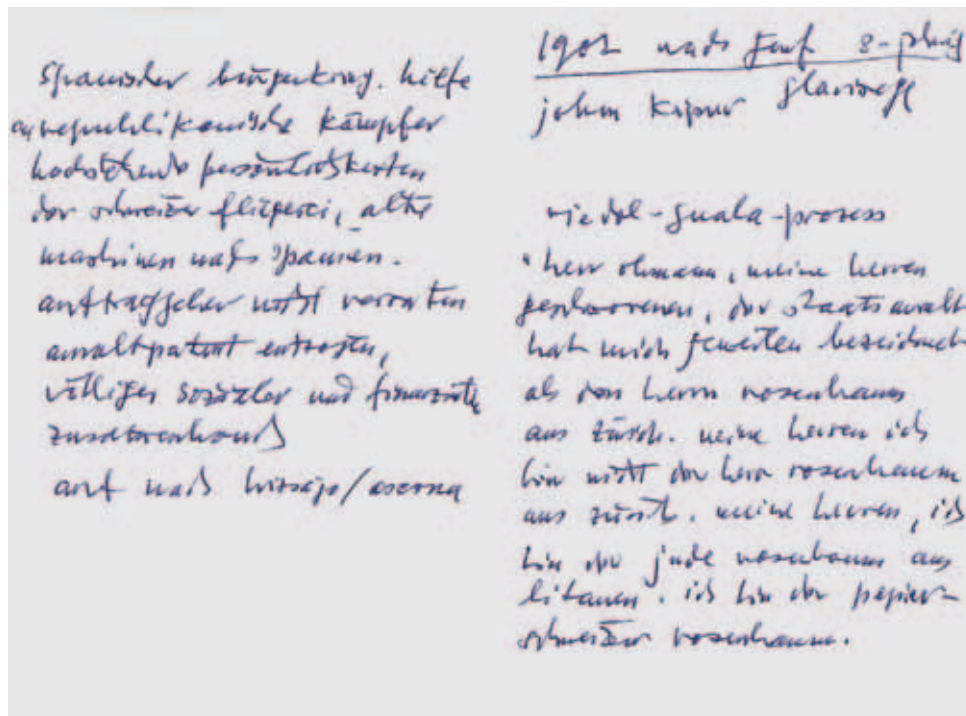 spanischer bürgerkrieg. hilfe
an republikanische kämpfer
hochstehende persönlichkeiten
der schweizer fliegerei, alte
maschinen nach spanien.
auftraggeber nicht verraten
anwaltpatent entzogen,
völliger sozialer und finanzieller
zusammenbruch
auf nach brissago/ascona
1902 nach genf 8-
john kipur glarisegg
riedel-guala-prozess
"herr obmann, meine herren
geschworenen, der staatsanwalt
hat mich jeweilen bezeichnet
als den herrn rosenbaum
aus zürich. meine herren ich
bin nicht der herr rosenbaum
aus zürich. meine herren, ich
bin der jude rosenbaum aus
litauen. ich bin der papier-
schweizer rosenbaum.